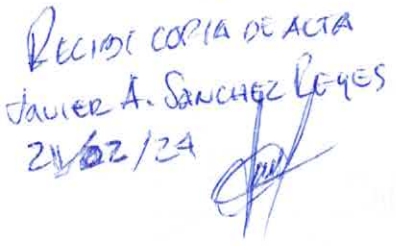 RECIBI COPIA DE ACTA
JAVIER A. SANCHEZ REYES
/02/24